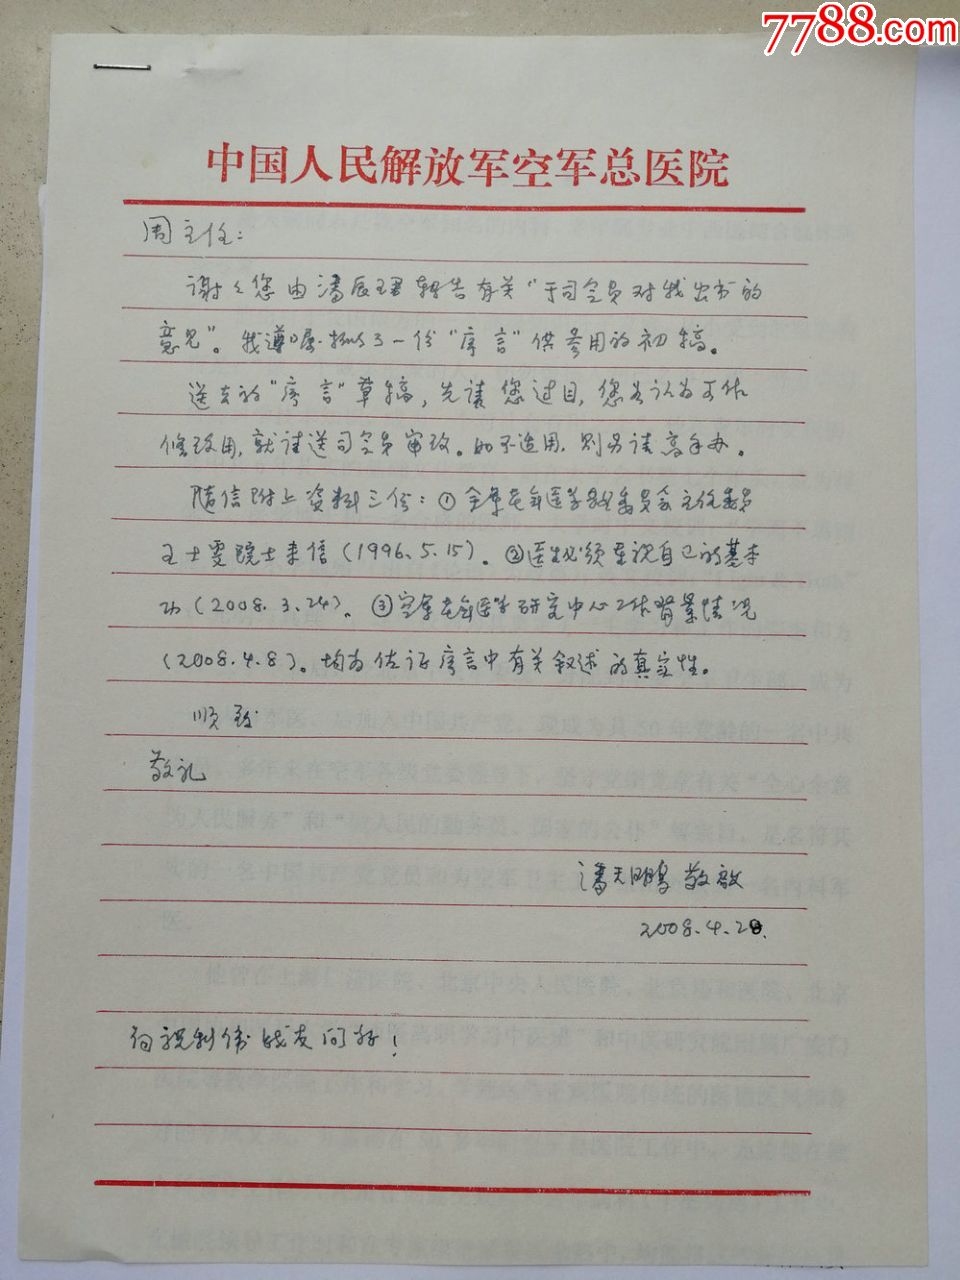 7788.com
中国人民解放军空军总医院
周主任：
谢谢您由潘辰王君转告有关“于司令员对我出书的
意见”。我遵嘱拟了一份“序言”供参用的初稿。
送去的“序言”草稿，先请您过目，您若认为可作
修改用，就请送司令员审改。如不适用，则另请高手办。
随信附上资料三份：①全军老年医学专业委员会主任委员
王士雯院士来信（1996.5.15）。②医生必须重视自己的基本
功（2008.3.24）。③空军老年医学研究中心工作背景情况
（2008.4.8）。均为佐证序言中有关叙述的真实性。
顺致
敬礼
潘天鹏 敬启
2008.4.20.
向祝利伟战友问好！